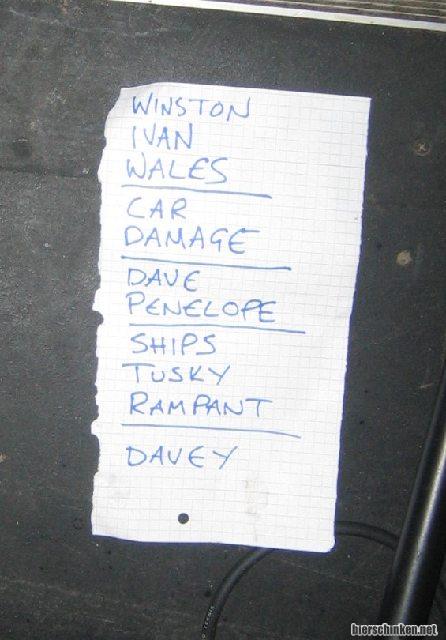 WINSTON
IVAN
WALES
CAR
DAMAGE
DAVE
PENELOPE
SHIPS
TUSKY
RAMPANT
DAVEY
bierschinken.net